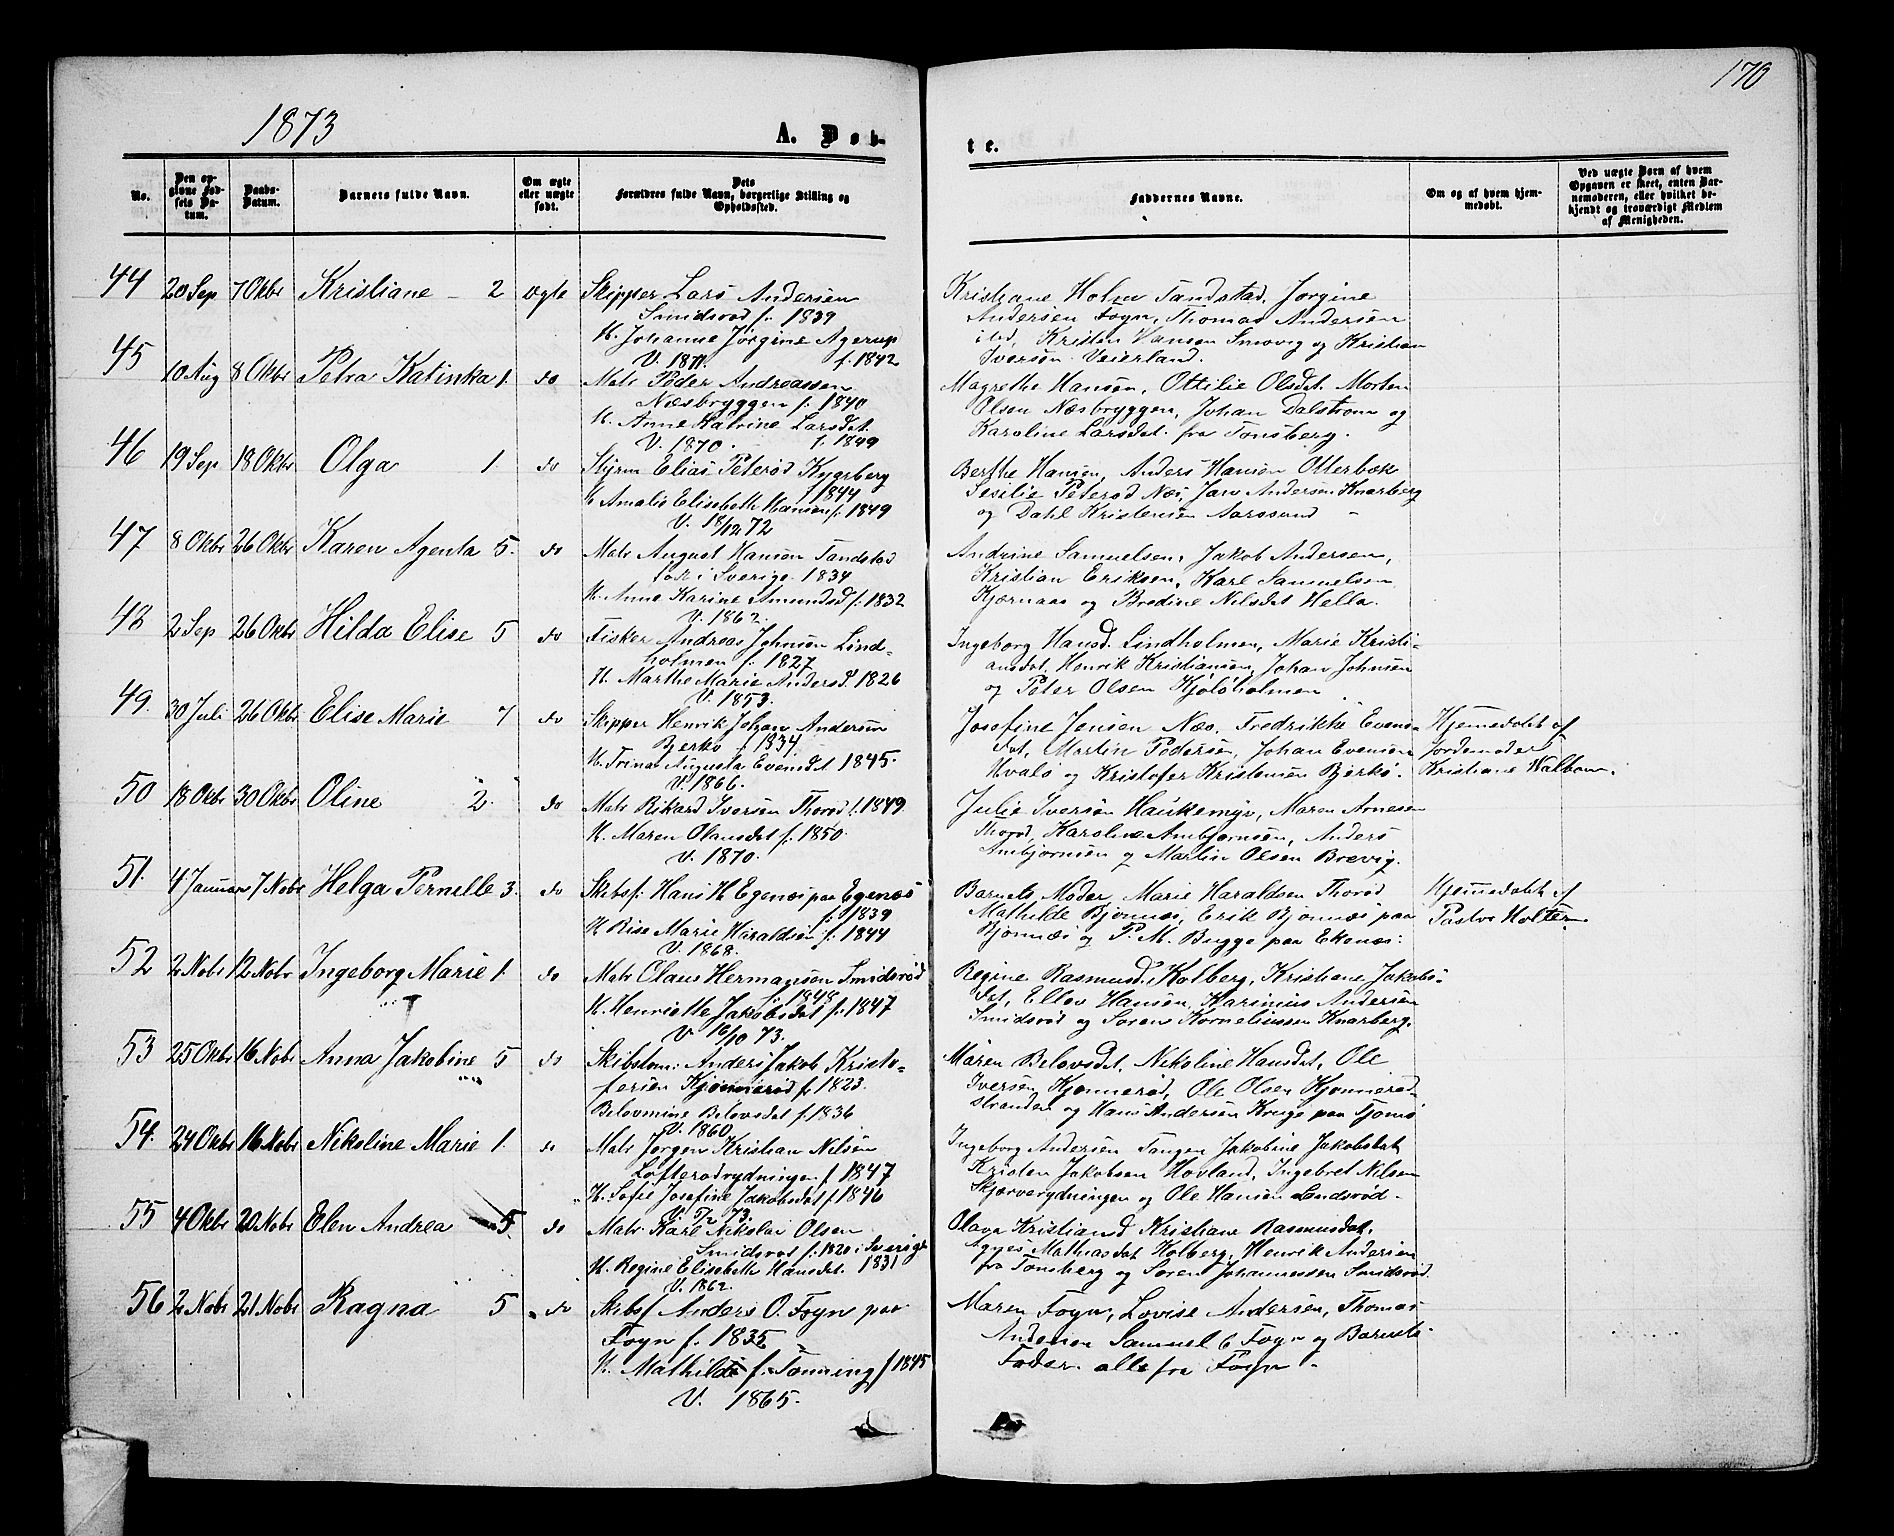 170
1873
A. Døb-
te.
No.
Den op-
givne Fød-
sels Da-
tum.
Daabs-
Datum.
Barnets fulde Navn.
Om ægte
eller uægte
født.
Dets
Forældres fulde Navn, borgerlige Stilling og
Opholdssted.
Faddernes Navne.
Om og af hvem hjem-
medøbt.
Ved uægte Børn af hvem
Opgaven er skeet, enten Bar-
nemoderen, eller hvilket be-
kjendt og troværdigt Medlem
af Menigheden.
44 20 Sep 7 Oktbr Kristiane - 2 ægte Skipper Lars Andersen
Smidsrød f. 1839
H. Johanne Jørgine Agerup
V. 1871. f. 1842
Kristiane Holm Tandstad, Jørgine
Andersen Føyn, Thomas Andersen
ibd, Kristen Hansen Smovig og Kristian
Iversen Veierland.
45 10 Aug 8 Oktbr Petra Katinka 1. do Matr Peder Andreassen
Næsbryggen f. 1840
H. Anne Katrine Larsdat
V. 1870. f. 1849
Magrethe Hansen, Ottilie Olsdat. Morten
Olsen Næsbryggen, Johan Dalstrøm og
Karoline Larsdat. fra Tønsberg.
46 19 Sep 18 Oktbr Olga 1. do Styrm Elias Peterød Knarberg
f. 1844
H Amalie Elisabeth Hansen f. 1849
V. 18/12 72
Berthe Hansen, Anders Hansen Otterbæk
Sesilie Peterød Næs, Jarv Andersen Knarberg
og Dahl Kristensen Aarssund -
47 8 Oktbr 26 Oktbr Karen Agenta 5. do Matr August Hansen Tandstad
født i Sverige. 1834
H. Anne Karine Amundsd f. 1832
V. 1862.
Andrine Samuelsen, Jakob Andersen,
Kristian Eriksen, Karl Samuelsen
Kjærnaas og Bredine Nilsdat Hella.
48 2 Sep 26 Oktbr Hilda Elise 5 do Fisker Andreas Johnsen Lind-
holmen f. 1827
H. Marthe Marie Andersd. 1826
V. 1853.
Ingeborg Hansd. Lindholmen, Marie Kristi-
ansdat, Henrik Kristiansen, Johan Johnsen
og Peter Olsen Kjøløholmen
49. 30 Juli 26 Oktbr Elise Marie 7 do Skipper Henrik Johan Andersen
Bjerkø f. 1834.
H. Trina Augusta Evensdat 1845.
V. 1866.
Josefine Jensen Næs, Fredrikke Evens-
dat, Martin Pedersen, Johan Evensen
Hvalø og Kristofer Kristensen Bjerkø.
Hjemedøbt af
Jordemoder
Kristiane Walbom.
50 18 Oktbr 30 Oktbr Oline 2. do Matr Rikard Iversen Thorød f. 1849
H. Maren Olausdat f. 1850.
V. 1870.
Julie Iversen Haukemyr, Maren Arnesen
Thorød, Karoline Ambjørnsen, Anders
Ambjørnsen og Martin Olsen Brevig.
51. 4 Januar 7 Nobr Helga Pernelle 3. do Skibsf: Hans H. Egenæs paa Egenæs
f. 1839
H Rise Marie Haraldsen f. 1844
V. 1868.
Barnets Moder, Marie Haraldsen Thorød
Mathilde Bjønnæs, Erik Bjønnæs paa
Bjønnæs og P. M. Bugge paa Ekenæs.
Hjemmedøbt af
Pastor Holter.
52 2 Nobr 12 Nobr Ingeborg Marie 1. do Matr Olaus Hermansen Smidsrød
f. 1848
H. Henriette Jakobsdat f. 1847
V 16/10 73.
Regine Rasmusd. Kolberg, Kristiane Jakobs-
dat, Ellev Hansen, Karinius Andersen
Smidsrød og Søren Korneliussen Knarberg.
53 25 Oktbr 16 Nobr Anna Jakobine 5 do Skibstøm: Anders Jakob Kristo-
fersen Kjønnerød f. 1823.
Belovmine Belovsdat f. 1836
V. 1860.
Maren Belovsdat, Nikoline Hansdat, Ole
Iversen Kjønnerød, Ole Olsen Kjønnerød-
stranden og Hans Andersen Kruge paa Tjømø
54. 24 Oktbr 16 Nobr Nikoline Marie 1. do Matr Jørgen Kristian Nilsen
Løfterødrydningen f 1847
H. Sofie Josefine Jakobsdat f. 1846
73.
Ingeborg Andersen Tangen Jakobine Jakobsdat
Kristen Jakobsen Hovland, Ingebret Nilsen
Skjærverydningen og Ole Hansen Lindsrød -
55 4 Oktbr 20 Nobr Elen Andrea 5. do Matr Karl Nikolai Olsen
Smidsrød f. 1820 i Sverige
H. Regine Elisabeth Hansdat. 1831
V. 1862.
Olava Kristiansd Kristiane Rasmusdat,
Agnes Mathiasdat Kolberg, Henrik Andersen
fra Tønsberg og Søren Johannessen Smidsrød.
56 2 Nobr 21 Nobr Ragna 5 do Skibsf Anders O. Føyn paa
Føyn f. 1835
H. Mathilde f. Tønning f 1845
V. 1865.
Maren Føyn, Lovise Andersen, Thomas
Andersen Samuel C Føyn og Barnets
Fader alle fra Føyn -